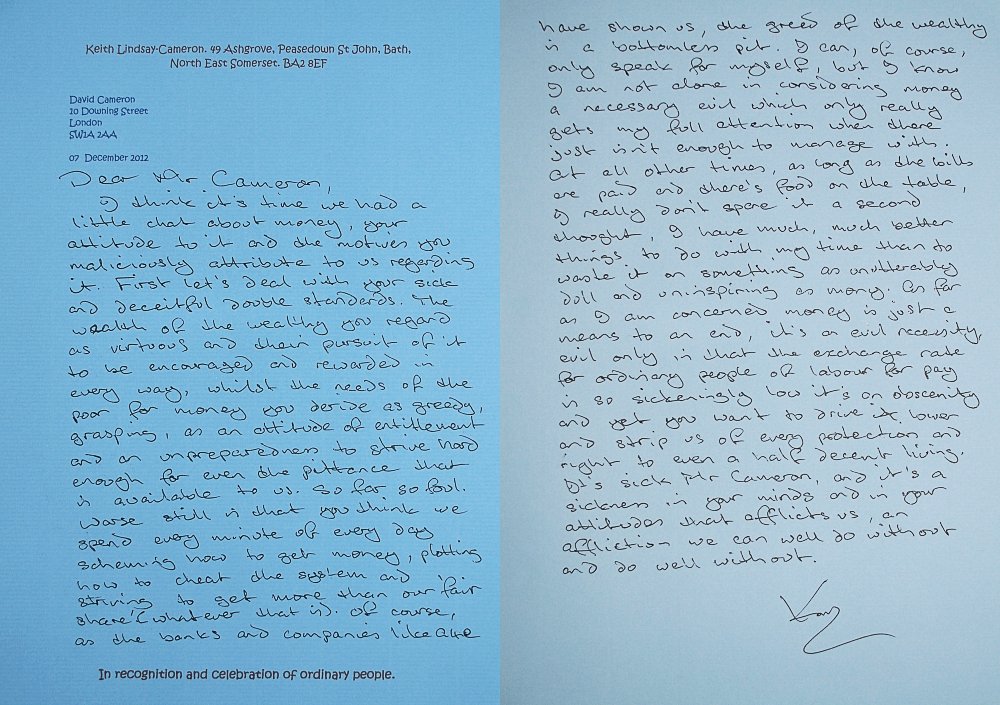 Keith Lindsay-Cameron. 49 Ashgrove, Peasedown St John, Bath,
North East Somerset. BA2 8EF
David Cameron
10 Downing Street
London
SW1A 2AA
07 December 2012
Dear Mr Cameron,
I think it's time we had a
little chat about money, your
attitude to it and the motives you
maliciously attribute to us regarding
it. First let's deal with your sick
and deceitful double standards. The
wealth of the wealthy you regard
as virtuous and their pursuit of it
to be encouraged and rewarded in
every way, whilst the needs of the
poor for money you deride as greedy,
grasping, as an attitude of entitlement
and an unpreparedness to strive hard
enough for even the pittance that
is available to us. So far so foul.
Worse still is that you think we
spend every minute of every day
scheming how to get money, plotting
how to cheat the system and
striving to get more than our 'fair
share' (whatever that is). Of course,
as the banks and companies like
have shown us, the greed of the wealthy
is a bottomless pit. I can, of course,
only speak for myself, but I know
I am not alone in considering money
a necessary evil which only really
gets my full attention when there
just isn't enough to manage with.
At all other times, as long as the bills
are paid and there's food on the table,
I really don't spare it a second
thought, I have much, much better
things to do with my time than to
waste it on something as unutterably
dull and uninspiring as money. As far
as I am concerned money is just a
means to an end, it's an evil necessity,
evil only in that the exchange rate
for ordinary people of labour for pay
is so sickeningly low it's an obscenity
and yet you want to drive it lower
and strip us of every protection and
right to even a half decent living.
It's sick Mr Cameron, and it's a
sickness in your minds and in your
attitudes that afflicts us, an
affliction we can well do without
and do well without.
In recognition and celebration of ordinary people.